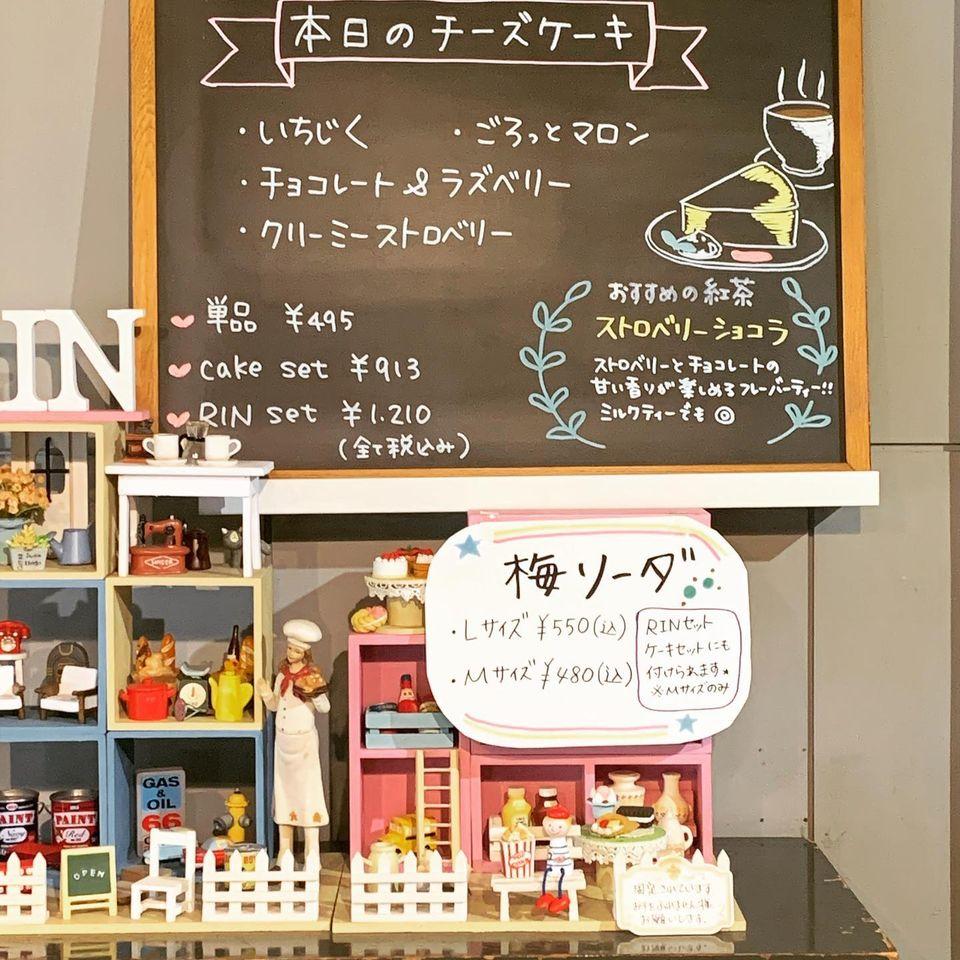 本日のチーズケーキ
・いちじく ・ごろっとマロン
・チョコレート&ラズベリー
・クリーミーストロベリー
単品 ¥495
cake set ¥913
RIN set ¥1.210
(全て税込み)
おすすめの紅茶
ストロベリーショコラ
ストロベリーとチョコレートの
甘い香りが楽しめるフレーバーティー!!
ミルクティーでも◎
IN
梅ソーダ
・Lサイズ ¥550(込)
・Mサイズ ¥480(込)
RINセット
ケーキセットにも
付けられます★
※Mサイズのみ
SINGER
GAS
& OIL
66
PAINT
Navy
PAINT
Red
OPEN
お願いします。